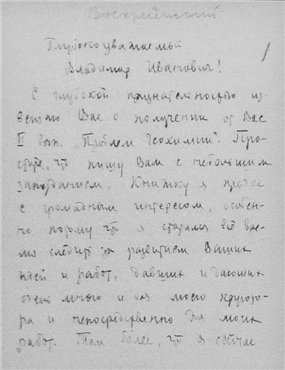 Воскресенский
Глубокоуважаемый
Владимир Иванович!
С глубокой признательностью из-
вещаю Вас о получении от Вас
II вып. "Проблем Геохимии". Про-
стите, что пишу Вам с небольшим
запозданием. Книжку я прочел
с громадным интересом, особен-
но потому что я старался всё вре-
мя следить за развитием Ваших
идей и работ, давших и дающих
очень много и для моего кругозо-
ра и непосредственно для моих
работ. Тем более, что я сейчас